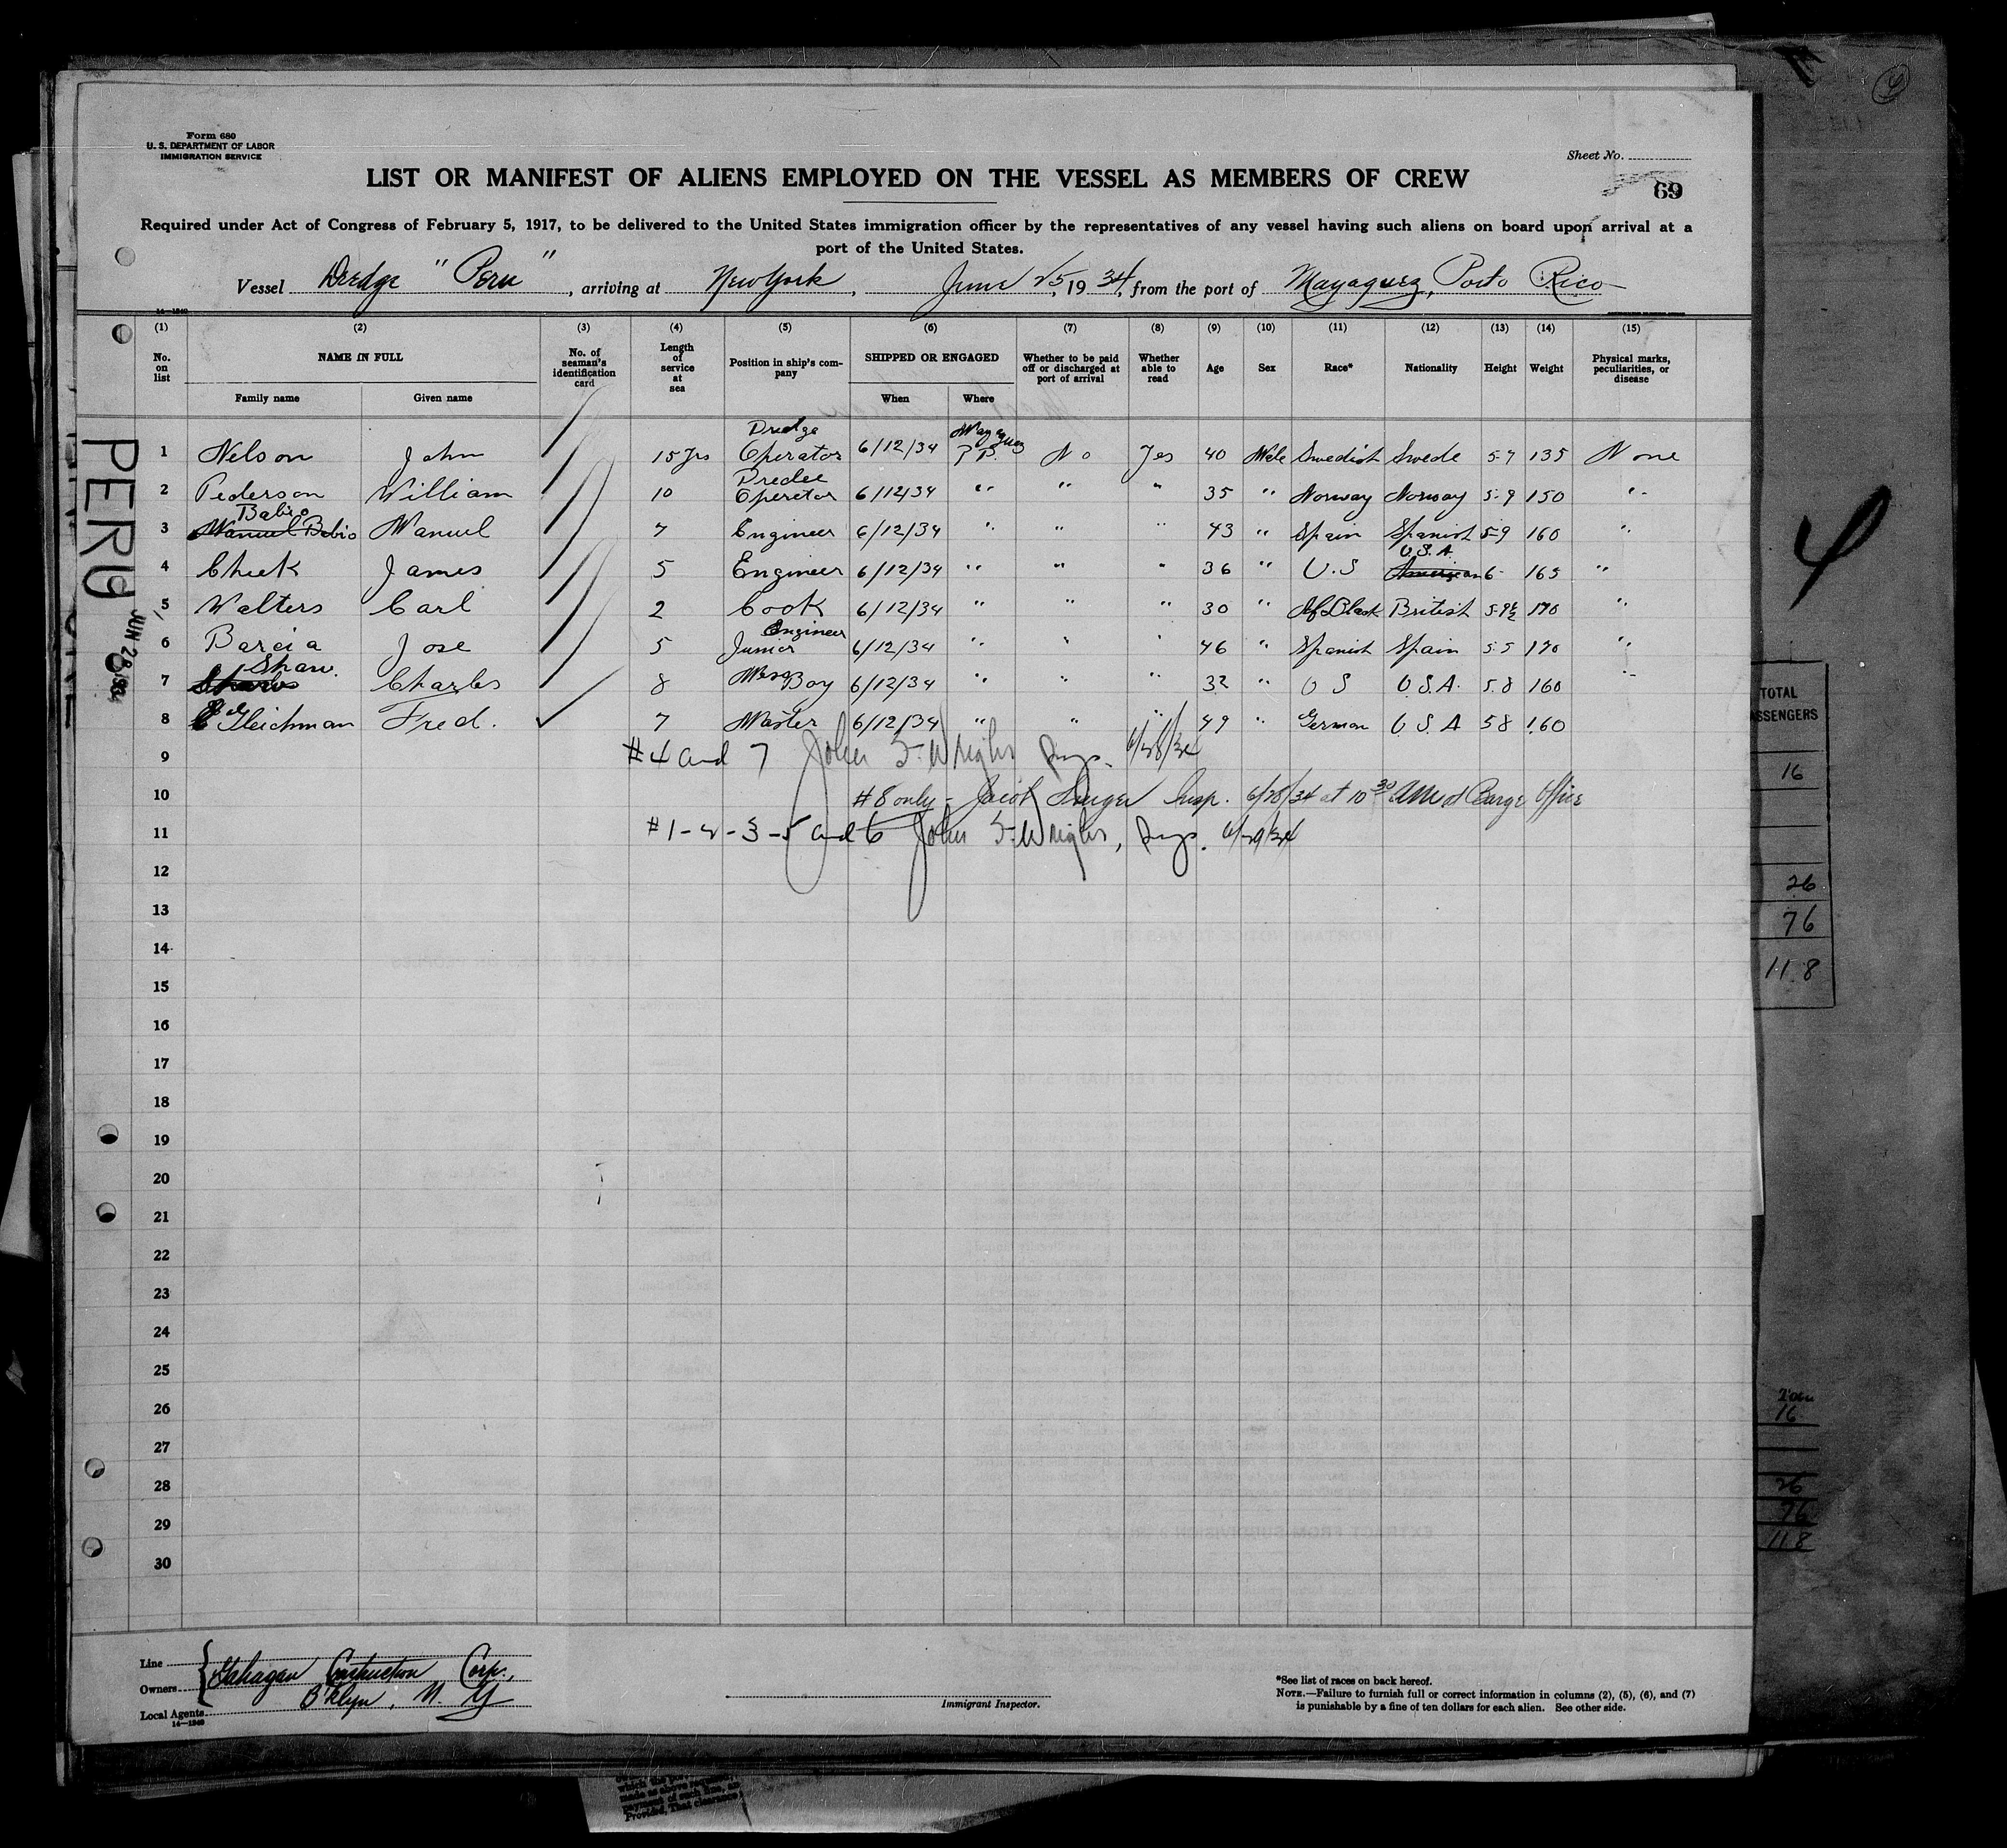 Form 680
U. S. DEPARTMENT OF LABOR
IMMIGRATION SERVICE
Sheet No.
69
LIST OR MANIFEST OF ALIENS EMPLOYED ON THE VESSEL AS MEMBERS OF CREW
Required under Act of Congress of February 5, 1917, to be delivered to the United States immigration officer by the representatives of any vessel having such aliens on board upon arrival at a
port of the United States.
Vessel Dredge "Peru", arriving at New York, June 25, 1934, from the port of Mayaguez, Porto Rico
14—1940
(1) (2) (3) (4) (5) (6) (7) (8) (9) (10) (11) (12) (13) (14) (15)
No. on list NAME IN FULL No. of seaman's identification card Length of service at sea Position in ship's company SHIPPED OR ENGAGED Whether to be paid off or discharged at port of arrival Whether able to read Age Sex Race* Nationality Height Weight Physical marks, peculiarities, or disease
Family name Given name When Where
1 Nelson John 15 yrs Dredge Operator 6/12/34 Mayaguez P.R. No Yes 40 Male Swedish Swede 5-7 135 None
2 Pederson William 10 Dredge Operator 6/12/34 " " " 35 " Norway Norway 5-9 150 "
3 Manuel Babio Babio Manuel 7 Engineer 6/12/34 " " " 43 " Spain Spanish 5-9 160 "
4 Cheek James 5 Engineer 6/12/34 " " " 36 " U.S American U.S.A. 6- 165 "
5 Walters Carl 2 Cook 6/12/34 " " " 30 " Af Black British 5-9½ 170 "
6 Barcia Jose 5 Junior Engineer 6/12/34 " " " 46 " Spanish Spain 5-5 170 "
7 Shaw. Charles 8 Mess Boy 6/12/34 " " " 32 " U S U.S.A. 5.8 160 "
8 Gleichman Fred. 7 Master 6/12/34 " " " 49 " German U S A 58 160
9 #4 and 7 John F. Wright Insp. 6/28/34
10 #8 only - Jacob Insp. 6/28/34 at 10 30 AM at Barge Office
11 #1-2-3-5 and 6 John F. Wright, Insp. 6/29/34
12
13
14
15
16
17
18
19
20
21
22
23
24
25
26
27
28
29
30
PERU
JUN 28 1934
Line
Owners Gahagan Construction Corp.,
B'klyn, N. Y
Local Agents
14—1940
Immigrant Inspector.
*See list of races on back hereof.
NOTE.—Failure to furnish full or correct information in columns (2), (5), (6), and (7)
is punishable by a fine of ten dollars for each alien. See other side.
TOTAL
16
26
76
118
16
26
76
118